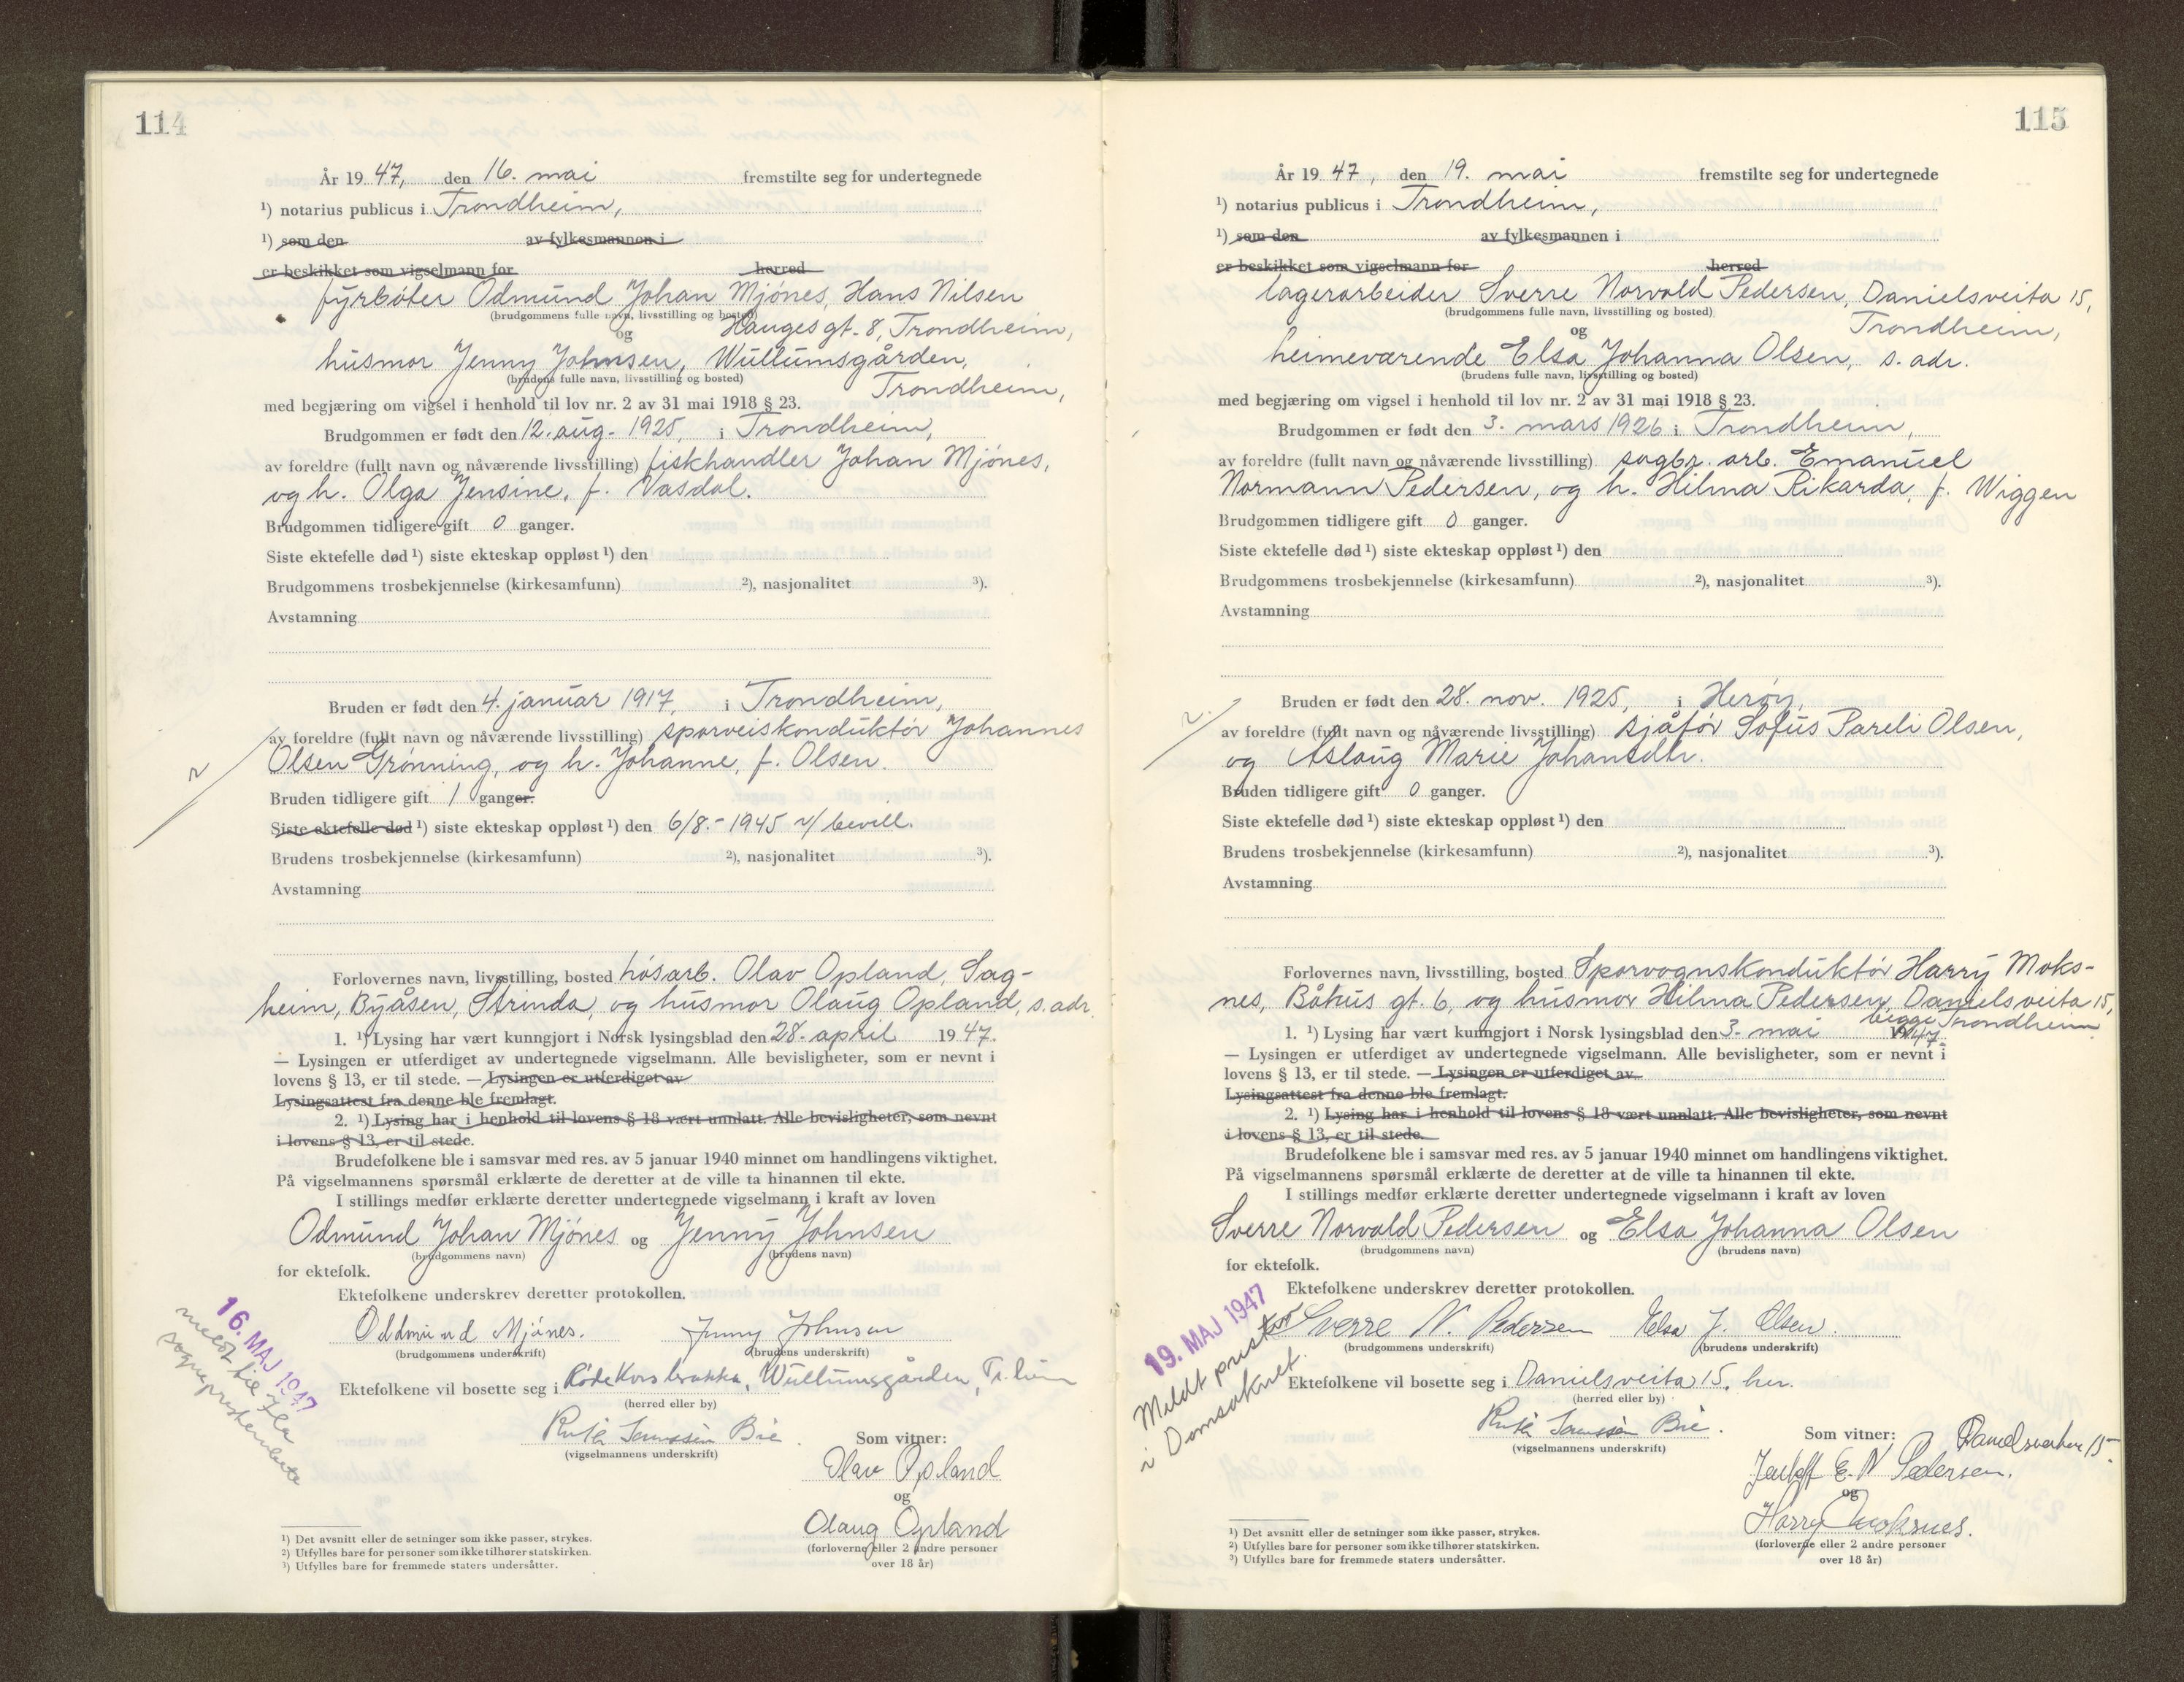 114
År 19 47, den 16. mai fremstilte seg for undertegnede
¹) notarius publicus i Trondheim,
¹) som den av fylkesmannen i
er beskikket som vigselmann for herred
fyrbøter Odmund Johan Mjónes, Hans Nilsen
(brudgommens fulle navn, livsstilling og bosted)
Hauges gt. 8, Trondheim,
og
husmor Jenny Johnsen, Wullumsgården,
(brudens fulle navn, livsstilling og bosted)
Trondheim,
med begjæring om vigsel i henhold til lov nr. 2 av 31 mai 1918 § 23.
Brudgommen er født den 12. aug. 1925, i Trondheim,
av foreldre (fullt navn og nåværende livsstilling) fiskhandler Johan Mjónes,
og h. Olga Jensine, f. Vasdal.
Brudgommen tidligere gift 0 ganger.
Siste ektefelle død ¹) siste ekteskap oppløst ¹) den
Brudgommens trosbekjennelse (kirkesamfunn) ²), nasjonalitet ³).
Avstamning
Bruden er født den 4. januar 1917, i Trondheim,
av foreldre (fullt navn og nåværende livsstilling) sporveiskonduktór Johannes
Olsen Grónning, og h. Johanne, f. Olsen.
Bruden tidligere gift 1 ganger.
Siste ektefelle død ¹) siste ekteskap oppløst ¹) den 6/8.- 1945 v/ bevill.
Brudens trosbekjennelse (kirkesamfunn) ²), nasjonalitet ³).
Avstamning
Forlovernes navn, livsstilling, bosted løsarb. Olav Opland, Sag-
heim, Byåsen, Strinda, og husmor Olaug Opland, s. adr.
1. ¹) Lysing har vært kunngjort i Norsk lysingsblad den 28. april 19 47.
— Lysingen er utferdiget av undertegnede vigselmann. Alle bevisligheter, som er nevnt i
lovens § 13, er til stede. — Lysingen er utferdiget av
Lysingsattest fra denne ble fremlagt.
2. ¹) Lysing har i henhold til lovens § 18 vært unnlatt. Alle bevisligheter, som nevnt
i lovens § 13, er til stede.
Brudefolkene ble i samsvar med res. av 5 januar 1940 minnet om handlingens viktighet.
På vigselmannens spørsmål erklærte de deretter at de ville ta hinannen til ekte.
I stillings medfør erklærte deretter undertegnede vigselmann i kraft av loven
Odmund Johan Mjónes og Jenny Johnsen
(brudgommens navn) (brudens navn)
for ektefolk.
Ektefolkene underskrev deretter protokollen.
Oddmund Mjónes. Jenny Johnsen
(brudgommens underskrift) (brudens underskrift)
16. MAJ 1947
meldt til Ila
sogneprestembete
Ektefolkene vil bosette seg i Røde Kors brakka, Wullumsgården, Tr.heim
(herred eller by)
Ruth Bie.
(vigselmannens underskrift)
Som vitner:
Olav Opland
og
Olaug Opland
(forloverne eller 2 andre personer
over 18 år)
¹) Det avsnitt eller de setninger som ikke passer, strykes.
²) Utfylles bare for personer som ikke tilhører statskirken.
³) Utfylles bare for fremmede staters undersåtter.
115
År 19 47, den 19. mai fremstilte seg for undertegnede
¹) notarius publicus i Trondheim,
¹) som den av fylkesmannen i
er beskikket som vigselmann for herred
lagerarbeider Sverre Norvald Pedersen, Danielsveita 15,
(brudgommens fulle navn, livsstilling og bosted)
Trondheim,
og
heimeværende Elsa Johanna Olsen, s. adr.
(brudens fulle navn, livsstilling og bosted)
med begjæring om vigsel i henhold til lov nr. 2 av 31 mai 1918 § 23.
Brudgommen er født den 3. mars 1926 i Trondheim,
av foreldre (fullt navn og nåværende livsstilling) sagbr. arb. Emanuel
Normann Pedersen, og h. Hilma Rikarda, f. Wiggen
Brudgommen tidligere gift 0 ganger.
Siste ektefelle død ¹) siste ekteskap oppløst ¹) den
Brudgommens trosbekjennelse (kirkesamfunn) ²), nasjonalitet ³).
Avstamning
Bruden er født den 28. nov. 1925, i Herøy,
av foreldre (fullt navn og nåværende livsstilling) sjåfór Sofus Pareli Olsen,
og Aslaug Marie Johansdtr.
Bruden tidligere gift 0 ganger.
Siste ektefelle død ¹) siste ekteskap oppløst ¹) den
Brudens trosbekjennelse (kirkesamfunn) ²), nasjonalitet ³).
Avstamning
Forlovernes navn, livsstilling, bosted Sporvognskonduktór Harry Moks-
nes, Båhus gt. 6, og husmor Hilma Pedersen, Danielsveita 15,
begge Trondheim
1. ¹) Lysing har vært kunngjort i Norsk lysingsblad den 3. mai 1947.
— Lysingen er utferdiget av undertegnede vigselmann. Alle bevisligheter, som er nevnt i
lovens § 13, er til stede. — Lysingen er utferdiget av
Lysingsattest fra denne ble fremlagt.
2. ¹) Lysing har i henhold til lovens § 18 vært unnlatt. Alle bevisligheter, som nevnt
i lovens § 13, er til stede.
Brudefolkene ble i samsvar med res. av 5 januar 1940 minnet om handlingens viktighet.
På vigselmannens spørsmål erklærte de deretter at de ville ta hinannen til ekte.
I stillings medfør erklærte deretter undertegnede vigselmann i kraft av loven
Sverre Norvald Pedersen og Elsa Johanna Olsen
(brudgommens navn) (brudens navn)
for ektefolk.
Ektefolkene underskrev deretter protokollen.
Sverre N. Pedersen Elsa J. Olsen.
(brudgommens underskrift) (brudens underskrift)
19. MAJ 1947
Meldt presten
i Domsoknet.
Ektefolkene vil bosette seg i Danielsveita 15, her.
(herred eller by)
Ruth Bie.
(vigselmannens underskrift)
Som vitner: Danielsveiten 15.
E. N Pedersen.
og
Harry Moksnes.
(forloverne eller 2 andre personer
over 18 år)
¹) Det avsnitt eller de setninger som ikke passer, strykes.
²) Utfylles bare for personer som ikke tilhører statskirken.
³) Utfylles bare for fremmede staters undersåtter.